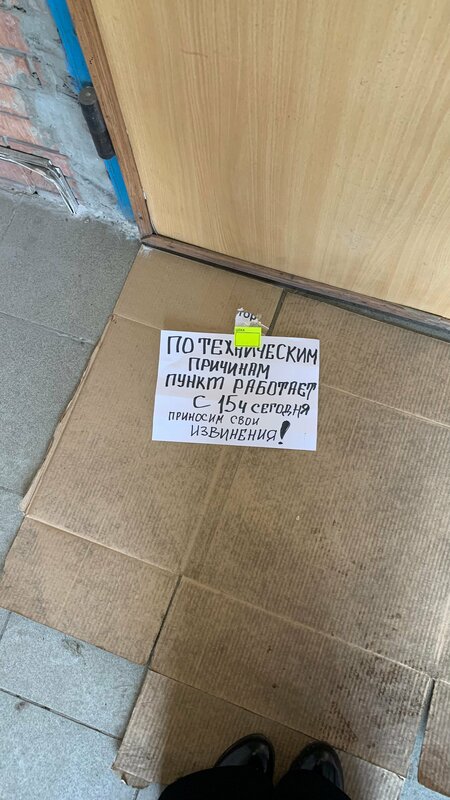 ПО ТЕХНИЧЕСКИМ
ПРИЧИНАМ
ПУНКТ РАБОТАЕТ
С 15ч СЕГОДНЯ
ПРИНОСИМ СВОИ
ИЗВИНЕНИЯ!